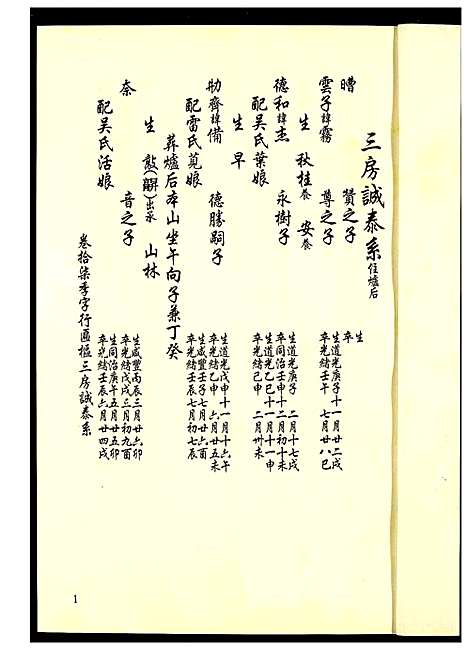 三房誠泰系 住爐后
嘈 贊之子 生 卒
雲子諱霧 尊之子 生道光庚子十一月廿二戌 卒光緒壬午 七月廿八巳
生 秋桂養 安養
德和諱杰 永樹子 生道光庚子 二月十七戌 卒同治壬申十二月初十未
配吳氏葉娘 生道光乙巳十一月十一申 卒光緒己申 二月卅未
生 早
助齊諱備 德勝嗣子 生道光戊申十一月十六午 卒光緒乙申 六月廿五未
配雷氏莧娘 生咸豐壬子七月廿六酉 卒光緒壬辰七月初七辰
葬爐后本山坐午向子兼丁癸
生 敨(嗣)出承 山林
奈 音之子 生咸豐丙辰三月廿六卯 卒光緒戊戌三月初九酉
配吳氏活娘 生同治庚午五月廿五卯 卒光緒壬辰六月廿四戌
卷拾柒季字行區樞三房誠泰系
1